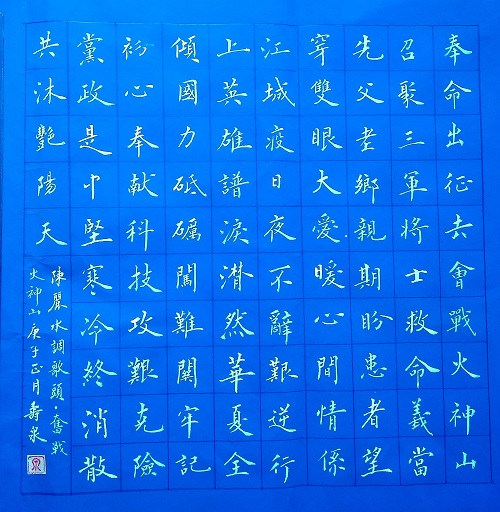 奉命出征去會戰火神山
召聚三軍將士救命義當
先父老鄉親期盼患者望
穿雙眼大愛暖心間情係
江城疫日夜不辭艱逆行
上英雄譜淚潸然華夏全
傾國力砥礪闖難關牢記
初心奉献科技攻艱克險
黨政是中堅寒冷終消散
共沐艷陽天
陳麗水調歌頭·奮戰
火神山庚子正月壽泉